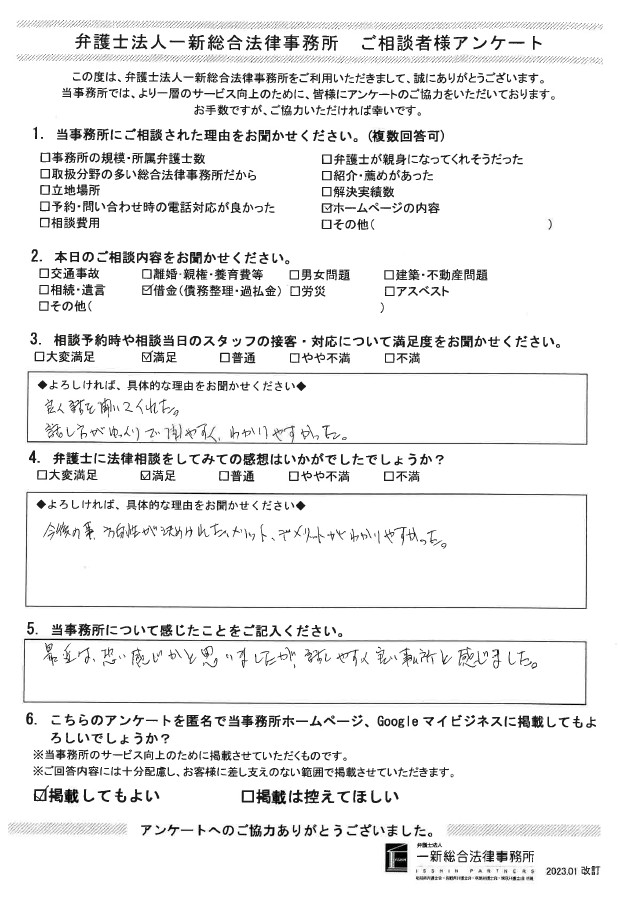 弁護士法人一新総合法律事務所　ご相談者様アンケート
この度は、弁護士法人一新総合法律事務所をご利用いただきまして、誠にありがとうございます。
当事務所では、より一層のサービス向上のために、皆様にアンケートのご協力をいただいております。
お手数ですが、ご協力いただければ幸いです。
1. 当事務所にご相談された理由をお聞かせください。(複数回答可)
□事務所の規模・所属弁護士数
□取扱分野の多い総合法律事務所だから
□立地場所
□予約・問い合わせ時の電話対応が良かった
□相談費用
□弁護士が親身になってくれそうだった
□紹介・薦めがあった
□解決実績数
☑ホームページの内容
□その他( )
2. 本日のご相談内容をお聞かせください。
□交通事故 □離婚・親権・養育費等 □男女問題 □建築・不動産問題
□相続・遺言 ☑借金(債務整理・過払金) □労災 □アスベスト
□その他( )
3. 相談予約時や相談当日のスタッフの接客・対応について満足度をお聞かせください。
□大変満足 ☑満足 □普通 □やや不満 □不満
◆よろしければ、具体的な理由をお聞かせください◆
良く話を聞いてくれた。
話し方がゆっくりで聞やすく、わかりやすかった。
4. 弁護士に法律相談をしてみての感想はいかがでしたでしょうか？
□大変満足 ☑満足 □普通 □やや不満 □不満
◆よろしければ、具体的な理由をお聞かせください◆
今後の事、方向性が決めけれた、メリット、デメリットがわかりやすかった。
5. 当事務所について感じたことをご記入ください。
最近は、恐い感じかと思いましたが、話しやすく良い事ム所と感じました。
6. こちらのアンケートを匿名で当事務所ホームページ、Google マイビジネスに掲載してもよ
ろしいでしょうか？
※当事務所のサービス向上のために掲載させていただくものです。
※ご回答内容には十分配慮し、お客様に差し支えのない範囲で掲載させていただきます。
☑掲載してもよい □掲載は控えてほしい
アンケートへのご協力ありがとうございました。
弁護士法人
一新総合法律事務所
ISSHIN PARTNERS
2023.01 改訂